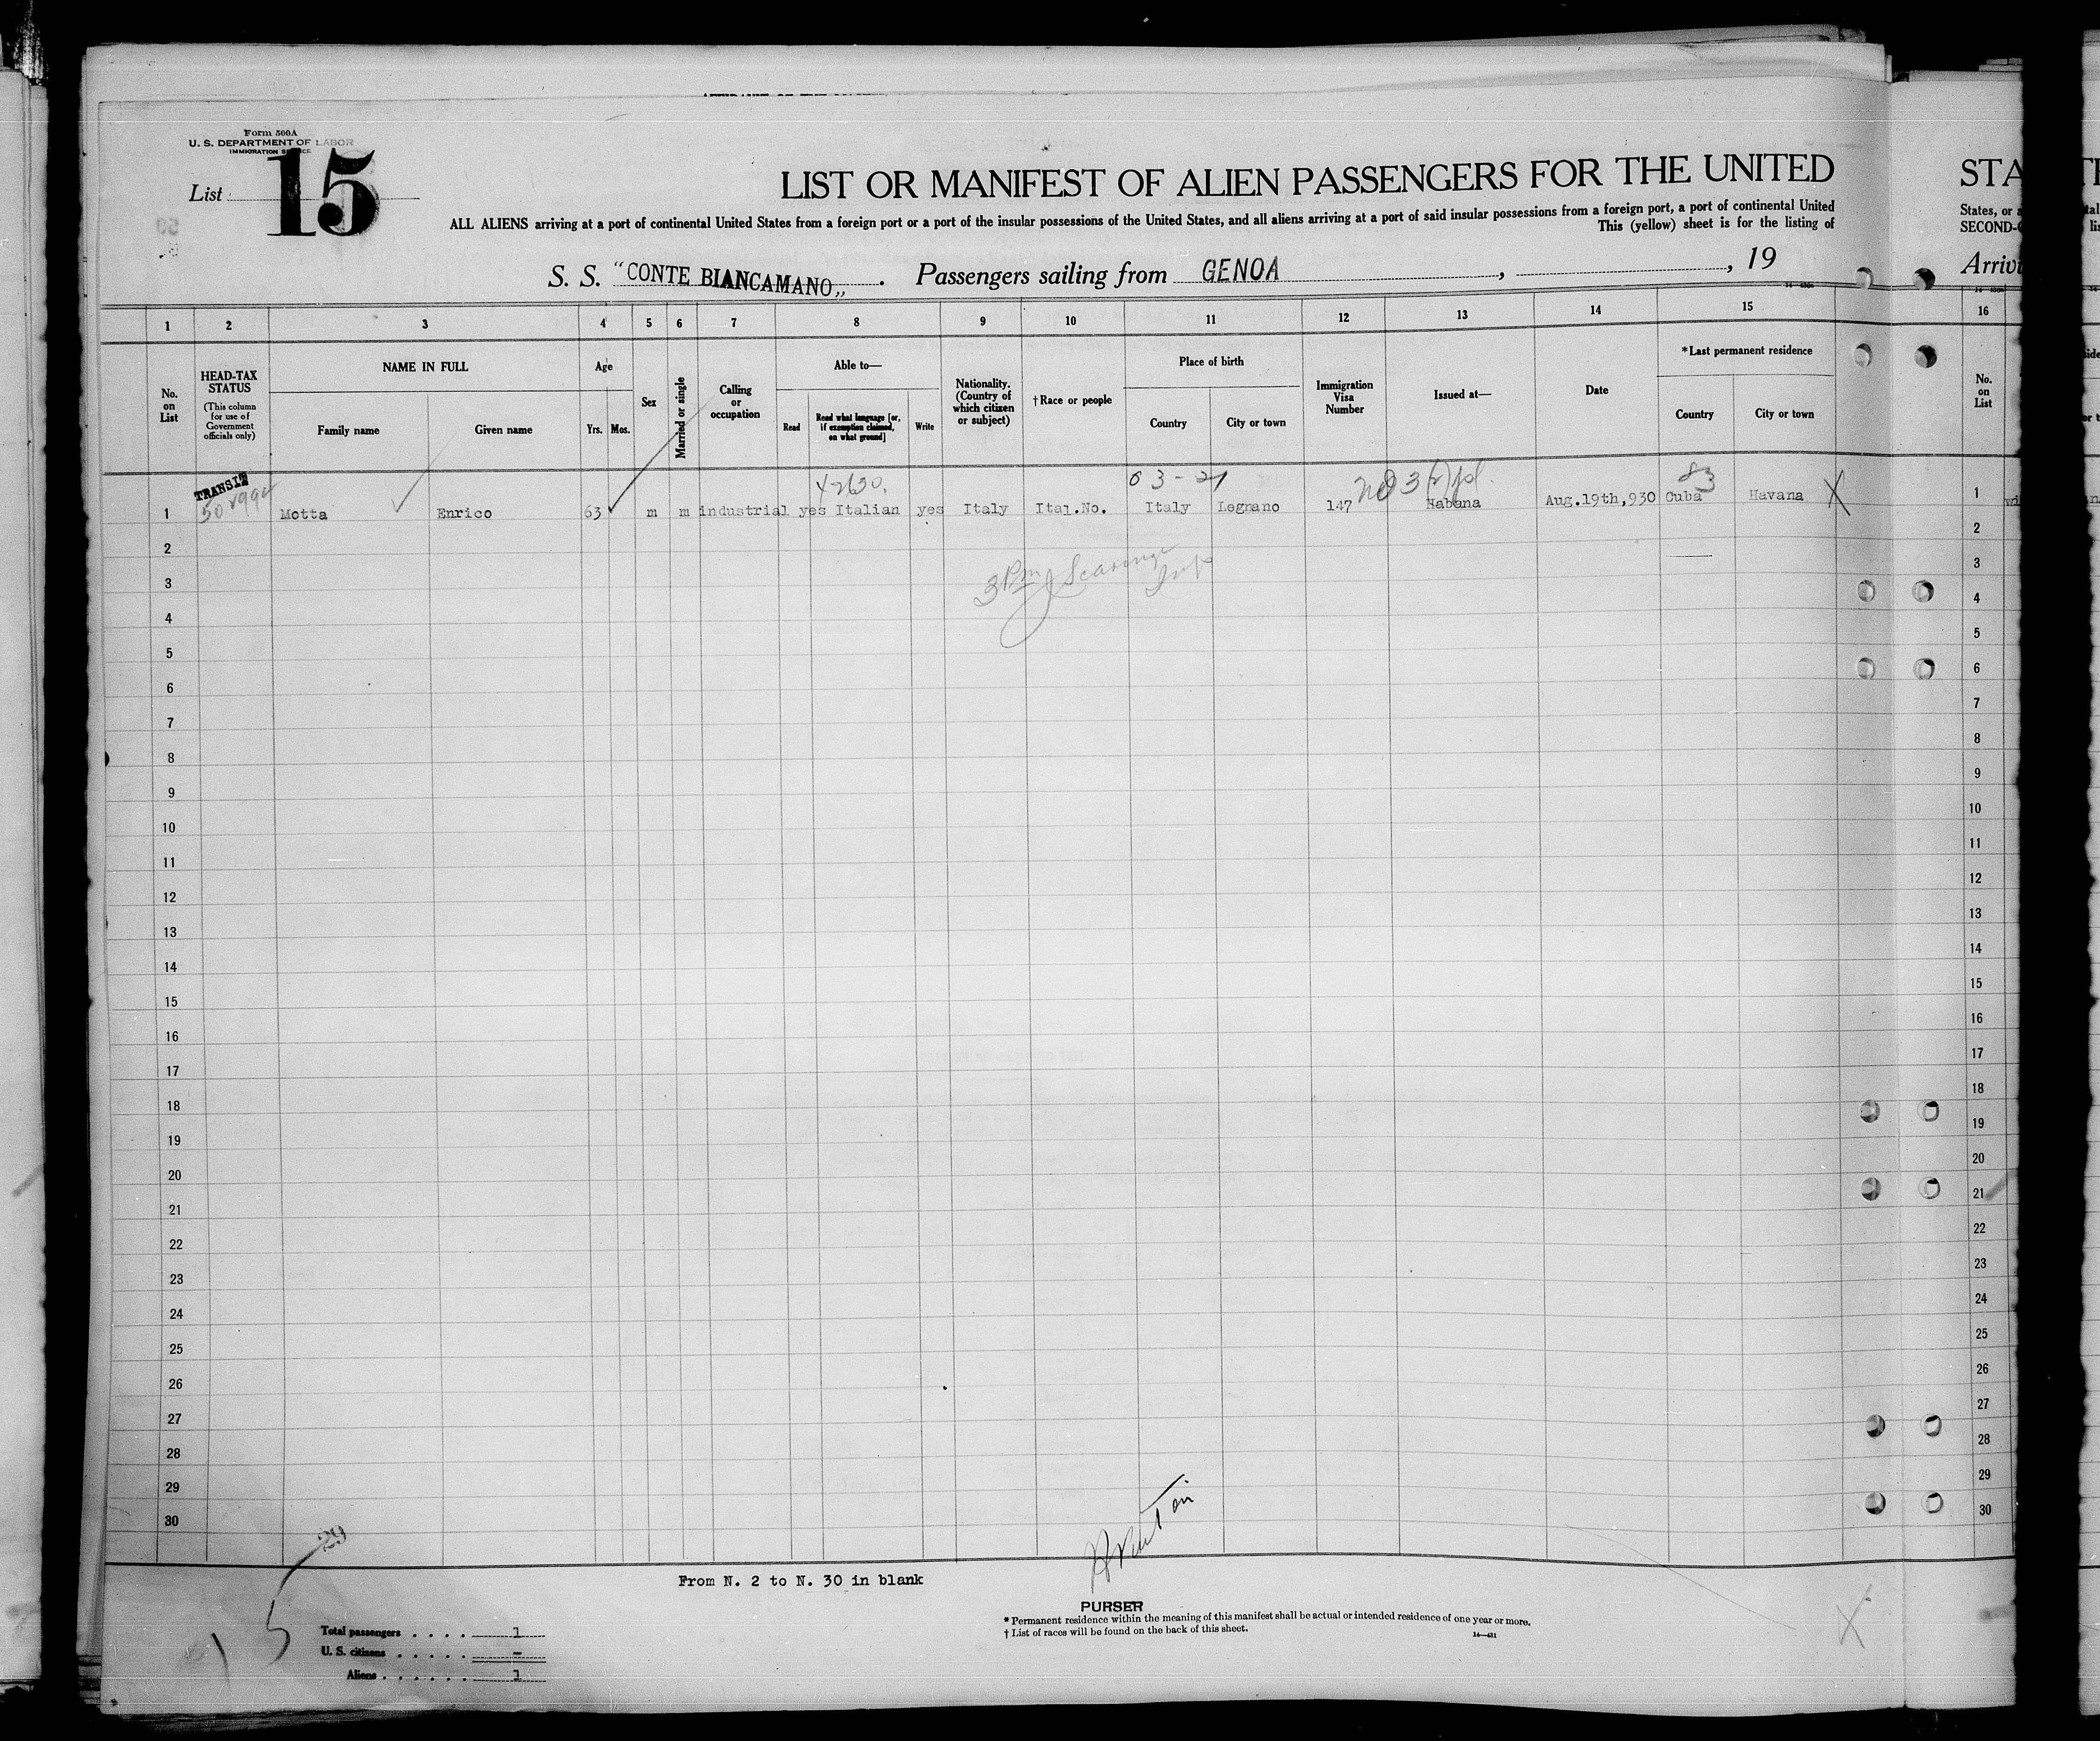 Form 500A
U. S. DEPARTMENT OF LABOR
IMMIGRATION SERVICE
List 15
LIST OR MANIFEST OF ALIEN PASSENGERS FOR THE UNITED
STA
ALL ALIENS arriving at a port of continental United States from a foreign port or a port of the insular possessions of the United States, and all aliens arriving at a port of said insular possessions from a foreign port, a port of continental United
States, or a
This (yellow) sheet is for the listing of
SECOND-C
S. S. "CONTE BIANCAMANO„ . Passengers sailing from GENOA , , 19
Arriv
1 2 3 4 5 6 7 8 9 10 11 12 13 14 15 16
No. on List
HEAD-TAX STATUS
(This column for use of Government officials only)
NAME IN FULL
Family name
Given name
Age
Yrs. Mos.
Sex
Married or single
Calling or occupation
Able to—
Read
Read what language [or, if exemption claimed, on what ground]
Write
Nationality. (Country of which citizen or subject)
† Race or people
Place of birth
Country
City or town
Immigration Visa Number
Issued at—
Date
*Last permanent residence
Country
City or town
No. on List
TRANSIT
1 Motta Enrico 63 m m industrial yes Italian yes Italy Ital.No. Italy Legnano 147 Habana Aug.19th,930 Cuba Havana X 1
83
3 Pm
2 2
3 3
4 4
5 5
6 6
7 7
8 8
9 9
10 10
11 11
12 12
13 13
14 14
15 15
16 16
17 17
18 18
19 19
20 20
21 21
22 22
23 23
24 24
25 25
26 26
27 27
28 28
29 29
30 30
29
From N. 2 to N. 30 in blank
PURSER
* Permanent residence within the meaning of this manifest shall be actual or intended residence of one year or more.
† List of races will be found on the back of this sheet.
14—431
Total passengers . . . . 1
U. S. citizens . . . . . –
Aliens . . . . . . 1